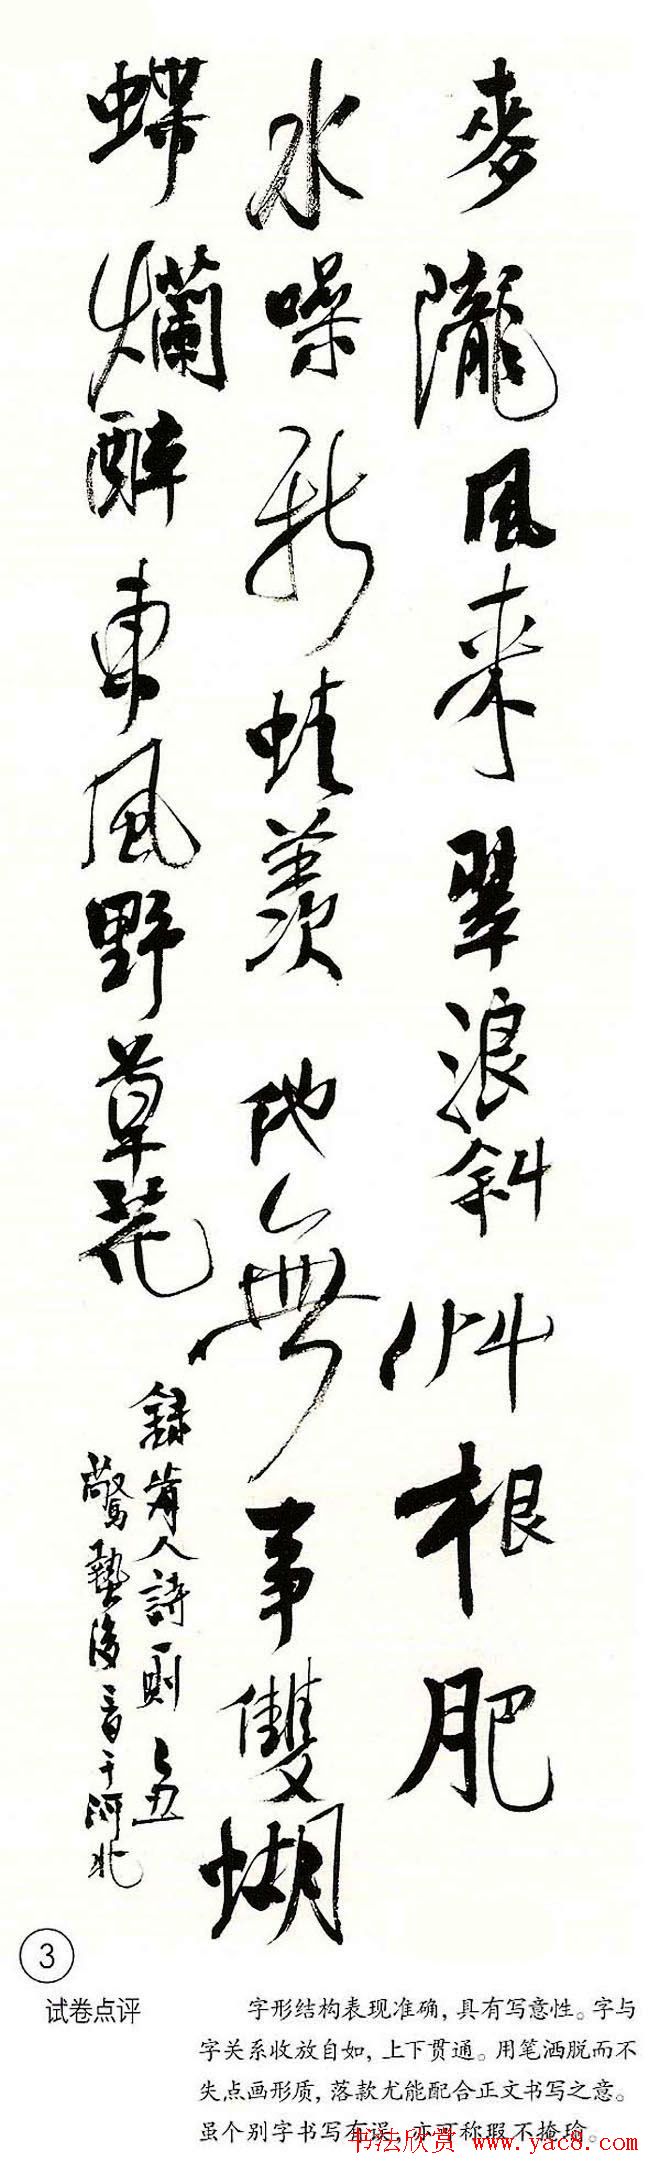 麥隴風來翠浪斜艸根肥
水噪新蛙羨他無事雙蝴
蝶爛醉東風野草花
錄前人詩一則 乙丑
驚蟄後三日於河北
3
试卷点评
字形结构表现准确，具有写意性。字与
字关系收放自如，上下贯通。用笔洒脱而不
失点画形质，落款尤能配合正文书写之意。
虽个别字书写有误，亦可称瑕不掩瑜。
书法欣赏 www.yac8.com